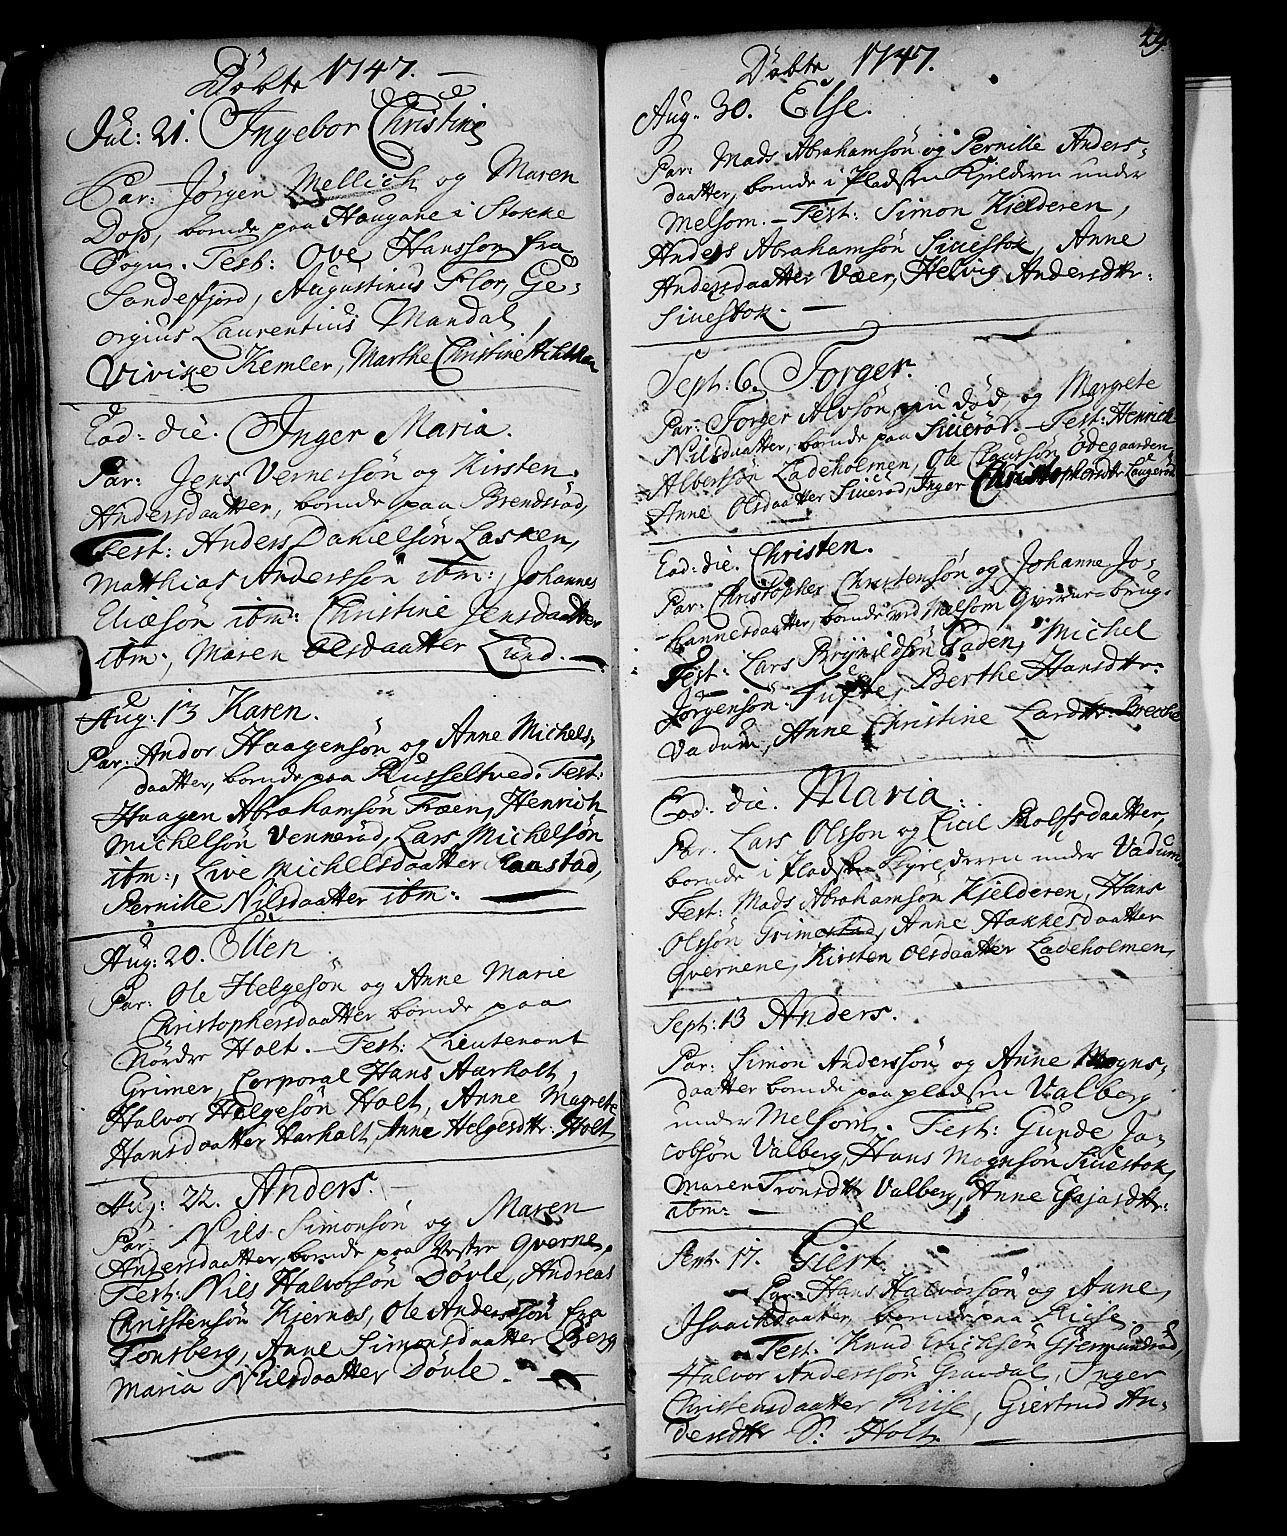 Döbte 1747.
Jul: 21. Ingebor Christine
Par: Jörgen Mellich og Maren
Dop, boende paa Haugane i Stokke
Sogn. Test: Ove Hansson fra
Sandefjord, Augustinus Flor, Ge-
orgius Laurentius Mandal,
Vivike Kemler, Marthe Christine
Eod: die. Inger Maria.
Par: Jens Vernersön og Kirsten
Andersdaatter, boende paa Brendsröd,
Test: Anders Danielsön Lasken,
Matthias Anderssön ibm:, Johannes
Eliæsön ibm: Christine Jensdaatter
ibm:, Maren Olsdaatter Lund.
Aug: 13 Karen.
Par: Andor Haagensön og Anne Michels-
daatter, boende paa Russeltved. Test:
Haagen Abrahamsön Fræen, Henrich
Michelsön Venneröd, Lars Michelsön
ibm:, Live Michelsdaatter Raastad,
Pernille Nilsdaatter ibm:
Aug: 20. Ellen
Par: Ole Helgesön og Anne Marie
Christophersdaatter boende paa
Nördre Holt. Test: Lieutenant
Grimer, Corporal Hans Aarholt,
Halvor Helgesön Holt, Anne Magrete
Hansdaatter Aarholt, Anne Helgesdtr: Holt
Aug: 22. Anders.
Par: Nils Simonsön og Maren
Andersdaatter, boende paa Vestre Qverne,
Test: Nils Halvorsön Dövle, Andreas
Christensön Kjernes, Ole Anderssön fra
Tonsberg, Anne Simonsdaatter Berg
Maria Nilsdaatter Dövle.
49.
Döbte 1747.
Aug: 30. Else.
Par: Mads Abrahamsön og Pernille Anders-
daatter, boende i Pladsen Kjelderen under
Melsom. Test: Simon Kjelderen,
Anders Abrahamsön Siuestok, Anne
Andersdaatter Væer, Helvig Andersdtr:
Siuestok.
Sept: 6. Torger.
Par: Torger Alvsön, nu död og Margrete
Nilsdaatter, boende paa Siueröd. Test: Henrich
Alberssön Ladeholmen, Ole Claussön Ödegaarden
Anne Olsdaatter Siueröd, Inger Christophersdtr Laugeröd
Eod: die. Christen.
Par: Christopher Christensön og Johanne Jo-
hannesdaatter, boende ved Melsom Qverne-brug.
Test: Lars Brynildsön Laden, Michel
Jörgensön Tufte, Berthe Hansdtr:
Vadum, Anne Christine Larsdtr: Brecke
Eod: die. Maria.
Par. Lars Olsson og Cicil Rolfsdaatter,
boende i Pladsen under Vadum.
Test: Mads Abrahamsön Kjelderen, Hans
Olssön Grimestad, Anne Hakkesdaatter
Qvernene, Kirsten Olsdaatter Ladeholmen,
Sept: 13 Anders.
Par: Simon Anderssön og Anne Mogns-
daatter boende paa pladsen Valberg
under Melsom. Test: Gunde Ja-
cobsön Valberg, Hans Mognsön Siuestok,
Maren Tronsdtr Valberg, Anne Esajasdtr:
ibm:
Sept: 17. Giert.
Par: Hans Halvorsön og Anne
Isaachsdaatter boende paa Riise
Test: Knud Erichsön Giermundröd,
Halvor Anderssön Gravdal, Inger
Christensdaatter Riise, Giertrud An-
dersdtr S: Holt